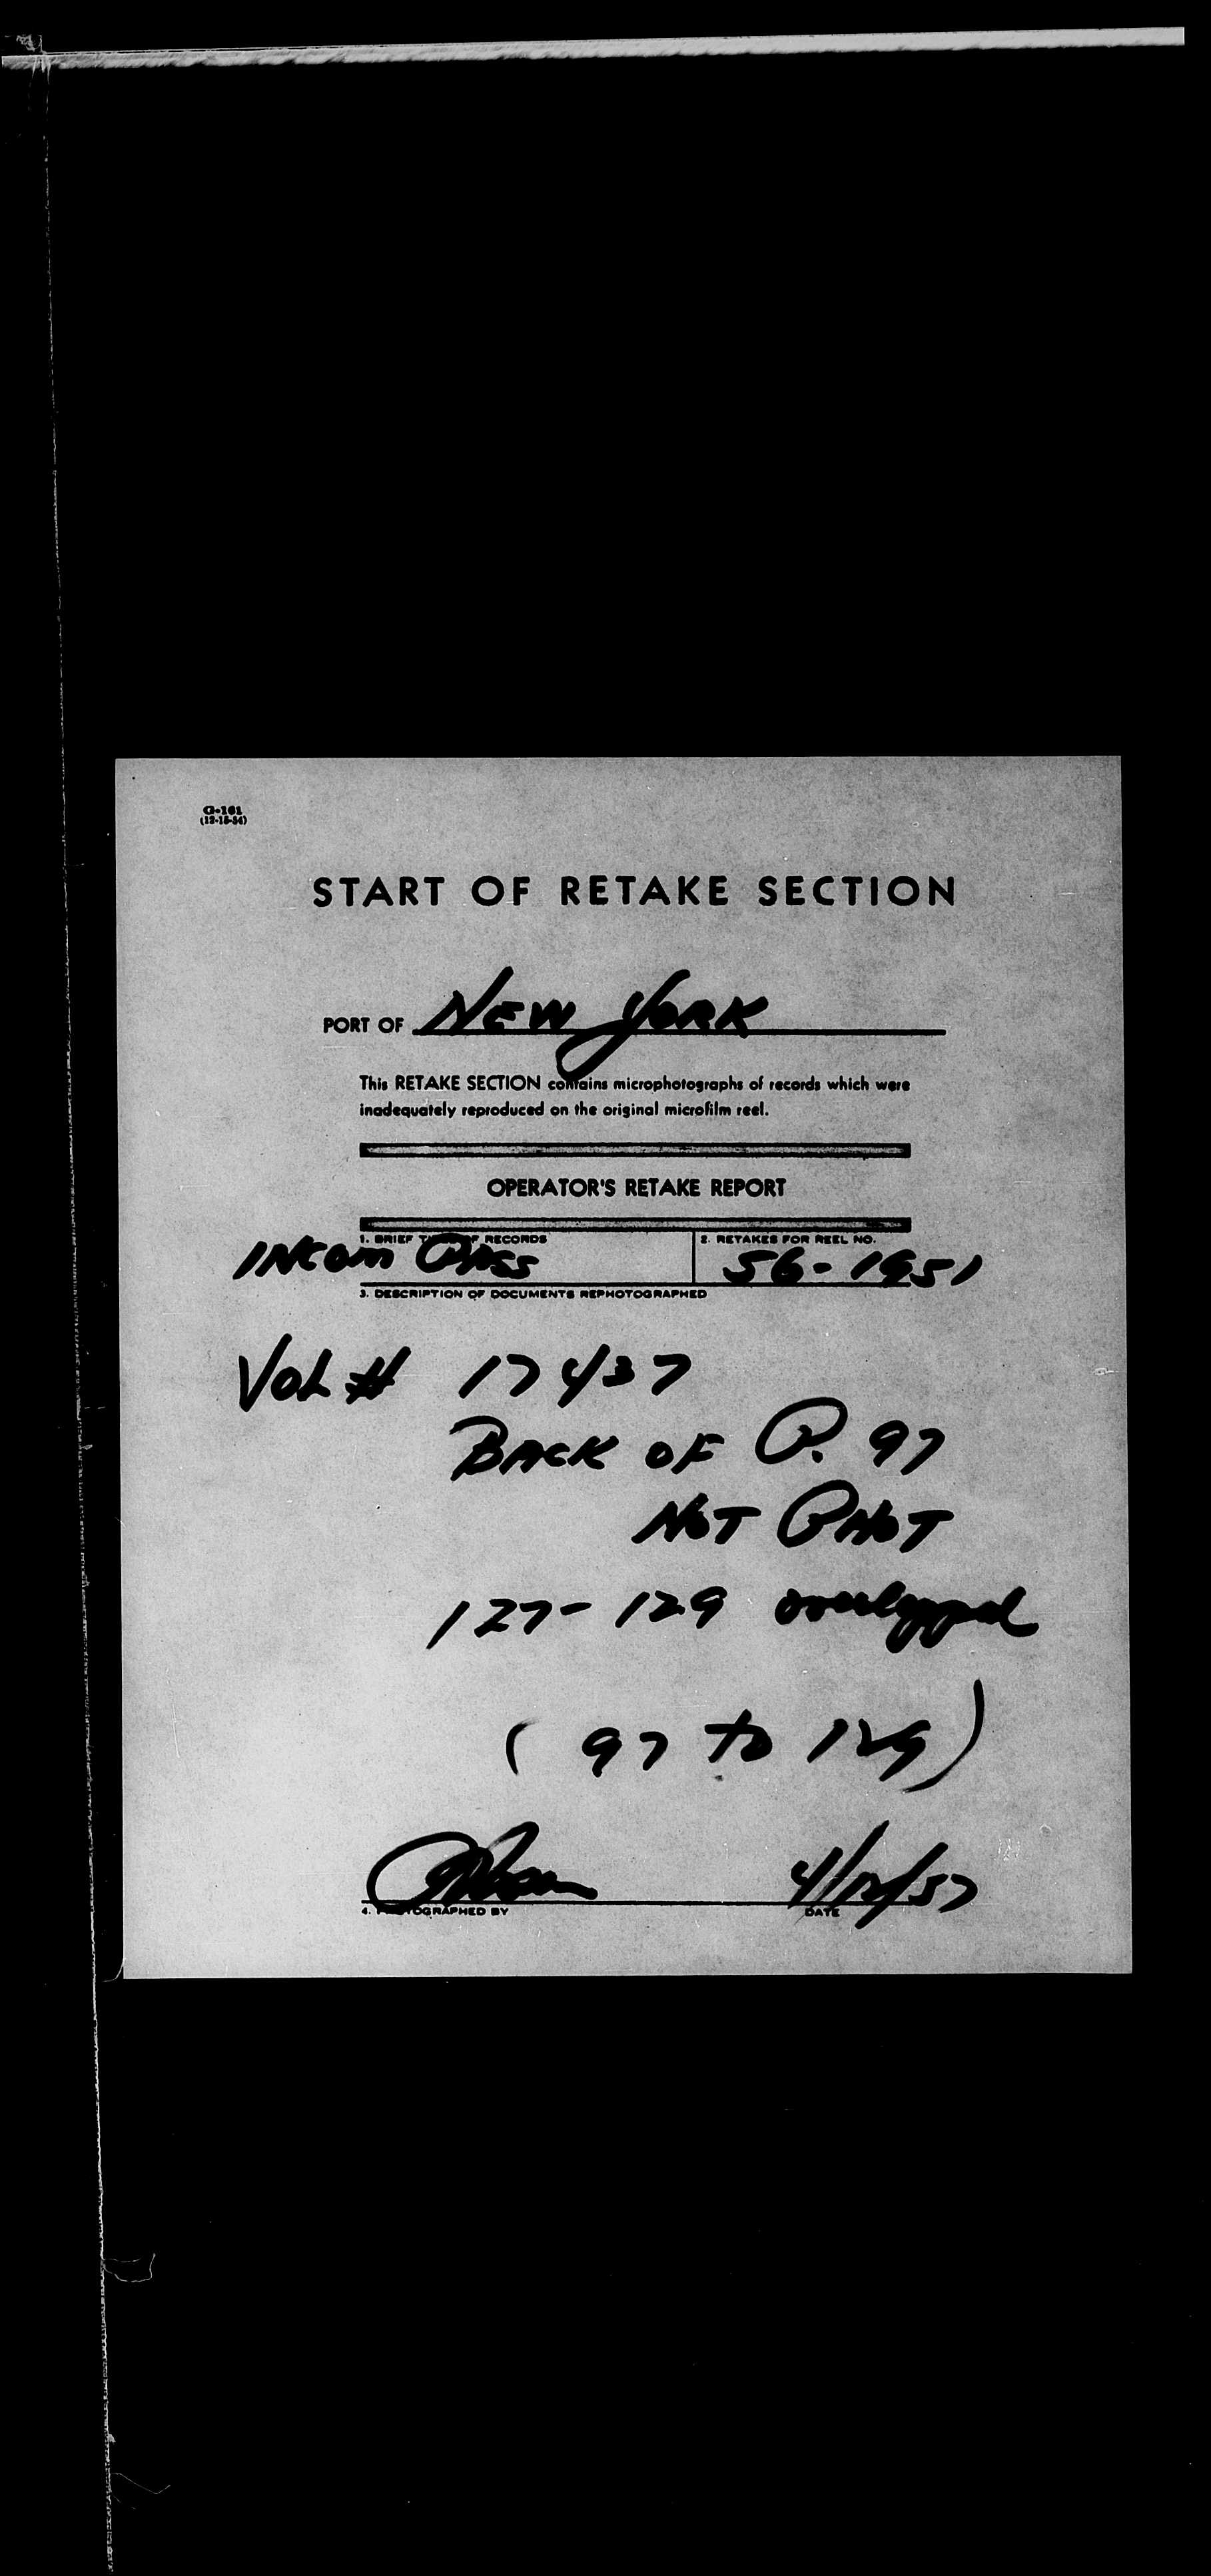 G-161
(12-15-54)
START OF RETAKE SECTION
PORT OF NEW YORK
This RETAKE SECTION contains microphotographs of records which were
inadequately reproduced on the original microfilm reel.
OPERATOR'S RETAKE REPORT
1. BRIEF TITLE OF RECORDS 2. RETAKES FOR REEL NO.
INCOM PASS 56-1951
3. DESCRIPTION OF DOCUMENTS REPHOTOGRAPHED
VOL # 17437
BACK OF P. 97
NOT PHOT
127-129 overlapped
(97 to 129)
4/12/57
4. PHOTOGRAPHED BY DATE